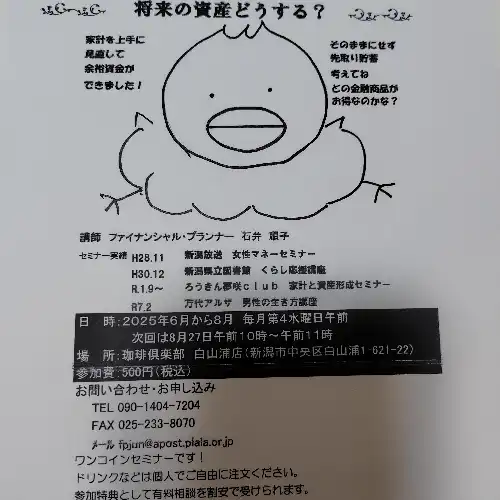 将来の資産どうする？
家計を上手に
見直して
余裕資金が
できました！
そのままにせず
先取り貯蓄
考えてね
どの金融商品が
お得なのかな？
講師 ファイナンシャル・プランナー 石弁 順子
セミナー実績 H28.11 新潟放送 女性マネーセミナー
H30.12 新潟県立図書館 くらし応援講座
R.1.9～ ろうきん夢咲ｃｌｕｂ 家計と資産形成セミナー
R7.2 万代アルザ 男性の生き方講座
日 時:2025年6月から8月 毎月第4水曜日午前
次回は8月27日午前10時～午前11時
場 所:珈琲倶楽部 白山浦店(新潟市中央区白山浦1-621-22)
参加費:500円(税込)
お問い合わせ・お申し込み
TEL 090-1404-7204
FAX 025-233-8070
メール fpjun@apost.plala.or.jp
ワンコインセミナーです！
ドリンクなどは個人でご自由に注文ください。
参加特典として有料相談を割安で受けられます。